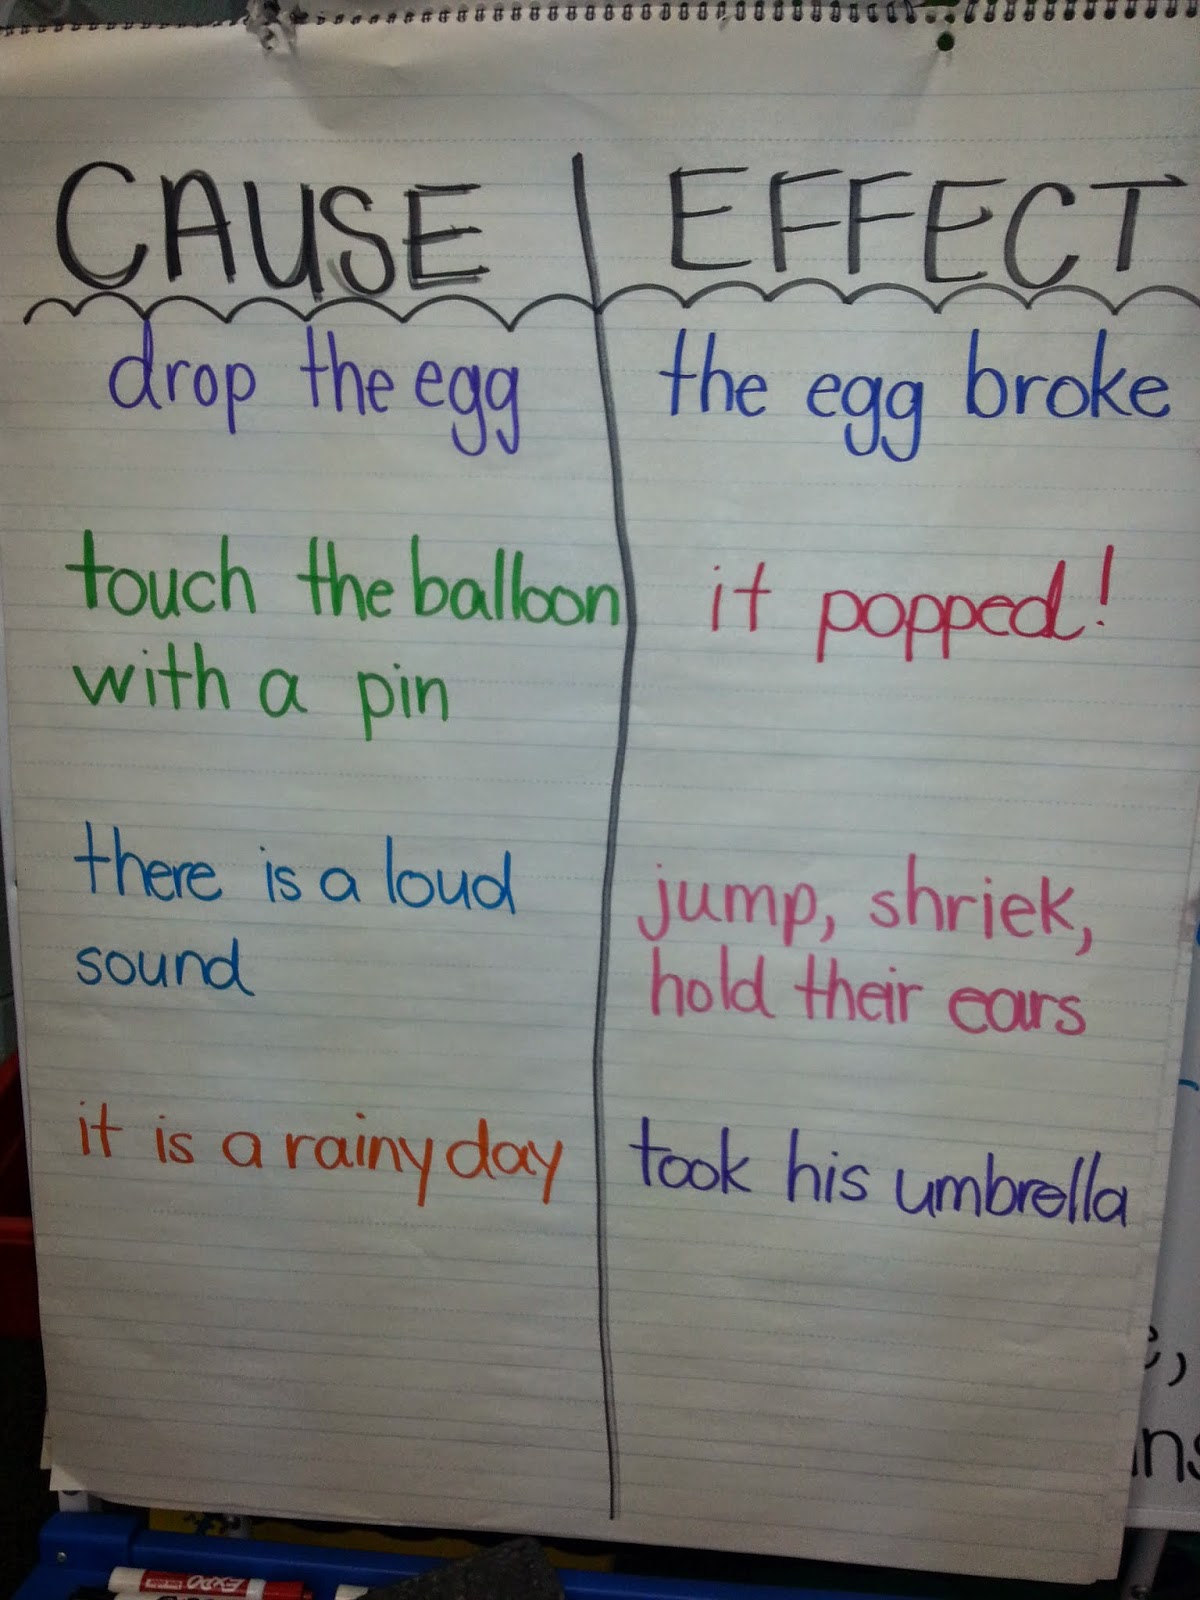 CAUSE EFFECT
drop the egg the egg broke
touch the balloon it popped!
with a pin
there is a loud jump, shriek,
sound hold their ears
it is a rainy day took his umbrella
EXPO